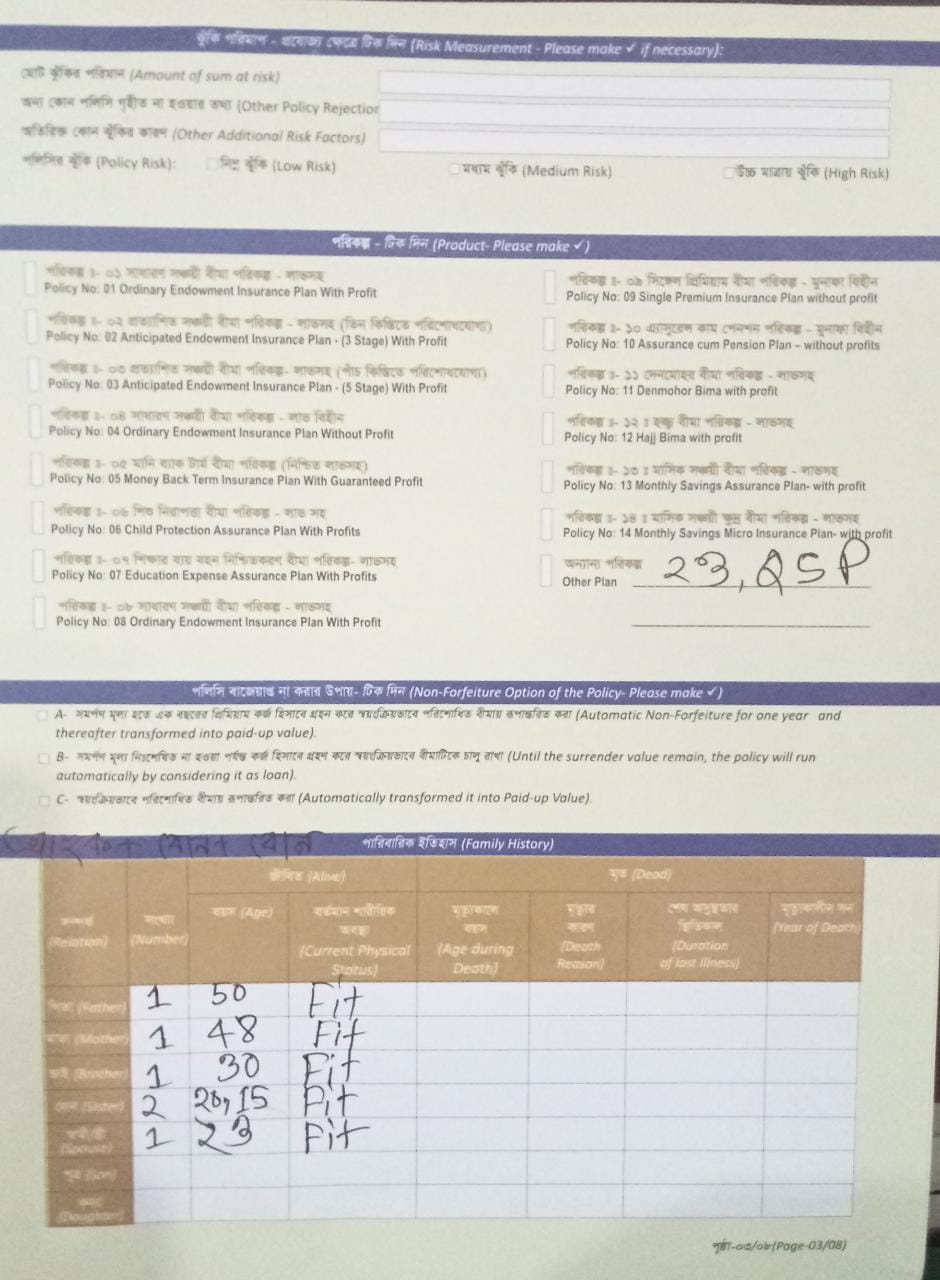 ঝুঁকি পরিমাপ - প্রযোজ্য ক্ষেত্রে টিক দিন (Risk Measurement - Please make ✓ if necessary):
মোট ঝুঁকির পরিমান (Amount of sum at risk)
অন্য কোন পলিসি গৃহীত না হওয়ার তথ্য (Other Policy Rejection
অতিরিক্ত কোন ঝুঁকির কারণ (Other Additional Risk Factors)
পলিসির ঝুঁকি (Policy Risk): নিম্ন ঝুঁকি (Low Risk) মধ্যম ঝুঁকি (Medium Risk) উচ্চ মাত্রায় ঝুঁকি (High Risk)
পরিকল্প - টিক দিন (Product- Please make ✓)
পরিকল্প ঃ- ০১ সাধারণ সঞ্চয়ী বীমা পরিকল্প - লাভসহ
Policy No: 01 Ordinary Endowment Insurance Plan With Profit
পরিকল্প ঃ- ০২ প্রত্যাশিত সঞ্চয়ী বীমা পরিকল্প - লাভসহ (তিন কিস্তিতে পরিশোধযোগ্য)
Policy No: 02 Anticipated Endowment Insurance Plan - (3 Stage) With Profit
পরিকল্প ঃ- ০৩ প্রত্যাশিত সঞ্চয়ী বীমা পরিকল্প- লাভসহ (পাঁচ কিস্তিতে পরিশোধযোগ্য)
Policy No: 03 Anticipated Endowment Insurance Plan - (5 Stage) With Profit
পরিকল্প ঃ- ০৪ সাধারণ সঞ্চয়ী বীমা পরিকল্প - লাভ বিহীন
Policy No: 04 Ordinary Endowment Insurance Plan Without Profit
পরিকল্প ঃ- ০৫ মানি ব্যাক টার্ম বীমা পরিকল্প (নিশ্চিত লাভসহ)
Policy No: 05 Money Back Term Insurance Plan With Guaranteed Profit
পরিকল্প ঃ- ০৬ শিশু নিরাপত্তা বীমা পরিকল্প - লাভ সহ
Policy No: 06 Child Protection Assurance Plan With Profits
পরিকল্প ঃ- ০৭ শিক্ষার ব্যয় বহন নিশ্চিতকরণ বীমা পরিকল্প- লাভসহ
Policy No: 07 Education Expense Assurance Plan With Profits
পরিকল্প ঃ- ০৮ সাধারণ সঞ্চয়ী বীমা পরিকল্প - লাভসহ
Policy No: 08 Ordinary Endowment Insurance Plan With Profit
পরিকল্প ঃ- ০৯ সিঙ্গেল প্রিমিয়াম বীমা পরিকল্প - মুনাফা বিহীন
Policy No: 09 Single Premium Insurance Plan without profit
পরিকল্প ঃ- ১০ এ্যাসুরেন্স কাম পেনশন পরিকল্প - মুনাফা বিহীন
Policy No: 10 Assurance cum Pension Plan – without profits
পরিকল্প ঃ- ১১ দেনমোহর বীমা পরিকল্প - লাভসহ
Policy No: 11 Denmohor Bima with profit
পরিকল্প ঃ- ১২ ঃ হজ্ব বীমা পরিকল্প - লাভসহ
Policy No: 12 Hajj Bima with profit
পরিকল্প ঃ- ১৩ ঃ মাসিক সঞ্চয়ী বীমা পরিকল্প - লাভসহ
Policy No: 13 Monthly Savings Assurance Plan- with profit
পরিকল্প ঃ- ১৪ ঃ মাসিক সঞ্চয়ী ক্ষুদ্র বীমা পরিকল্প - লাভসহ
Policy No: 14 Monthly Savings Micro Insurance Plan- with profit
অন্যান্য পরিকল্প
Other Plan 23, QSP
পলিসি বাজেয়াপ্ত না করার উপায়- টিক দিন (Non-Forfeiture Option of the Policy- Please make ✓)
A- সমর্পণ মূল্য হতে এক বছরের প্রিমিয়াম কর্জ হিসাবে গ্রহন করে স্বয়ংক্রিয়ভাবে পরিশোধিত বীমায় রূপান্তরিত করা (Automatic Non-Forfeiture for one year and
thereafter transformed into paid-up value).
B- সমর্পণ মূল্য নিঃশেষিত না হওয়া পর্যন্ত কর্জ হিসাবে গ্রহণ করে স্বয়ংক্রিয়ভাবে বীমাটিকে চালু রাখা (Until the surrender value remain, the policy will run
automatically by considering it as loan).
C- স্বয়ংক্রিয়ভাবে পরিশোধিত বীমায় রূপান্তরিত করা (Automatically transformed it into Paid-up Value).
গ্রাহক + বোন + বোন
পারিবারিক ইতিহাস (Family History)
জীবিত (Alive) মৃত (Dead)
সম্পর্ক (Relation) সংখ্যা (Number) বয়স (Age) বর্তমান শারীরিক অবস্থা (Current Physical Status) মৃত্যুকালে বয়স (Age during Death) মৃত্যুর কারণ (Death Reason) শেষ অসুস্থতার স্থিতিকাল (Duration of last illness) মৃত্যুকালীন সন (Year of Death)
পিতা (Father) 1 50 Fit
মাতা (Mother) 1 48 Fit
ভাই (Brother) 1 30 Fit
বোন (Sister) 2 20, 15 Fit
স্বামী/স্ত্রী (Spouse) 1 23 Fit
পুত্র (Son)
কন্যা (Daughter)
পৃষ্ঠা-০৩/০৮(Page-03/08)